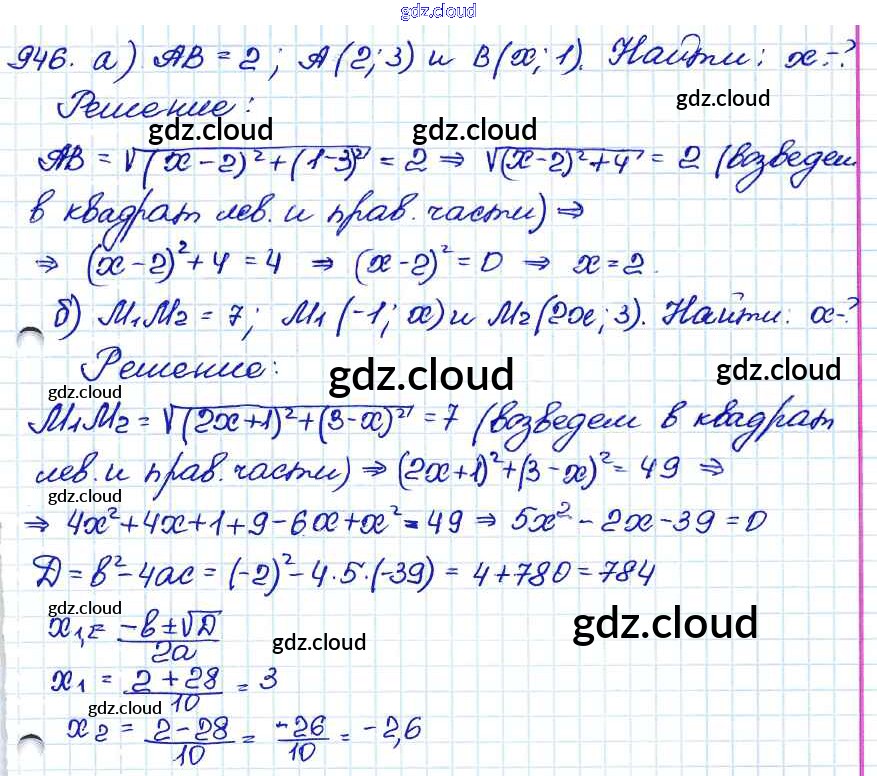 gdz.cloud
946. а) AB = 2; A(2; 3) и B(x; 1). Найти: x-?
Решение:
gdz.cloud
gdz.cloud gdz.cloud
AB = √((x-2)²+(1-3)²) = 2 ⇒ √((x-2)²+4) = 2 (возведем
в квадрат лев. и прав. части) ⇒
⇒ (x-2)²+4 = 4 ⇒ (x-2)² = 0 ⇒ x = 2.
б) M₁M₂ = 7; M₁(-1; x) и M₂(2x; 3). Найти: x-?
Решение:
gdz.cloud gdz.cloud gdz.cloud
M₁M₂ = √((2x+1)²+(3-x)²) = 7 (возведем в квадрат
лев. и прав. части) ⇒ (2x+1)²+(3-x)² = 49 ⇒
gdz.cloud
⇒ 4x²+4x+1+9-6x+x² = 49 ⇒ 5x²-2x-39 = 0
D = b²-4ac = (-2)²-4·5·(-39) = 4+780 = 784
gdz.cloud gdz.cloud
x₁,₂ = (-b±√D)/2a
gdz.cloud
x₁ = (2+28)/10 = 3
gdz.cloud
x₂ = (2-28)/10 = -26/10 = -2,6